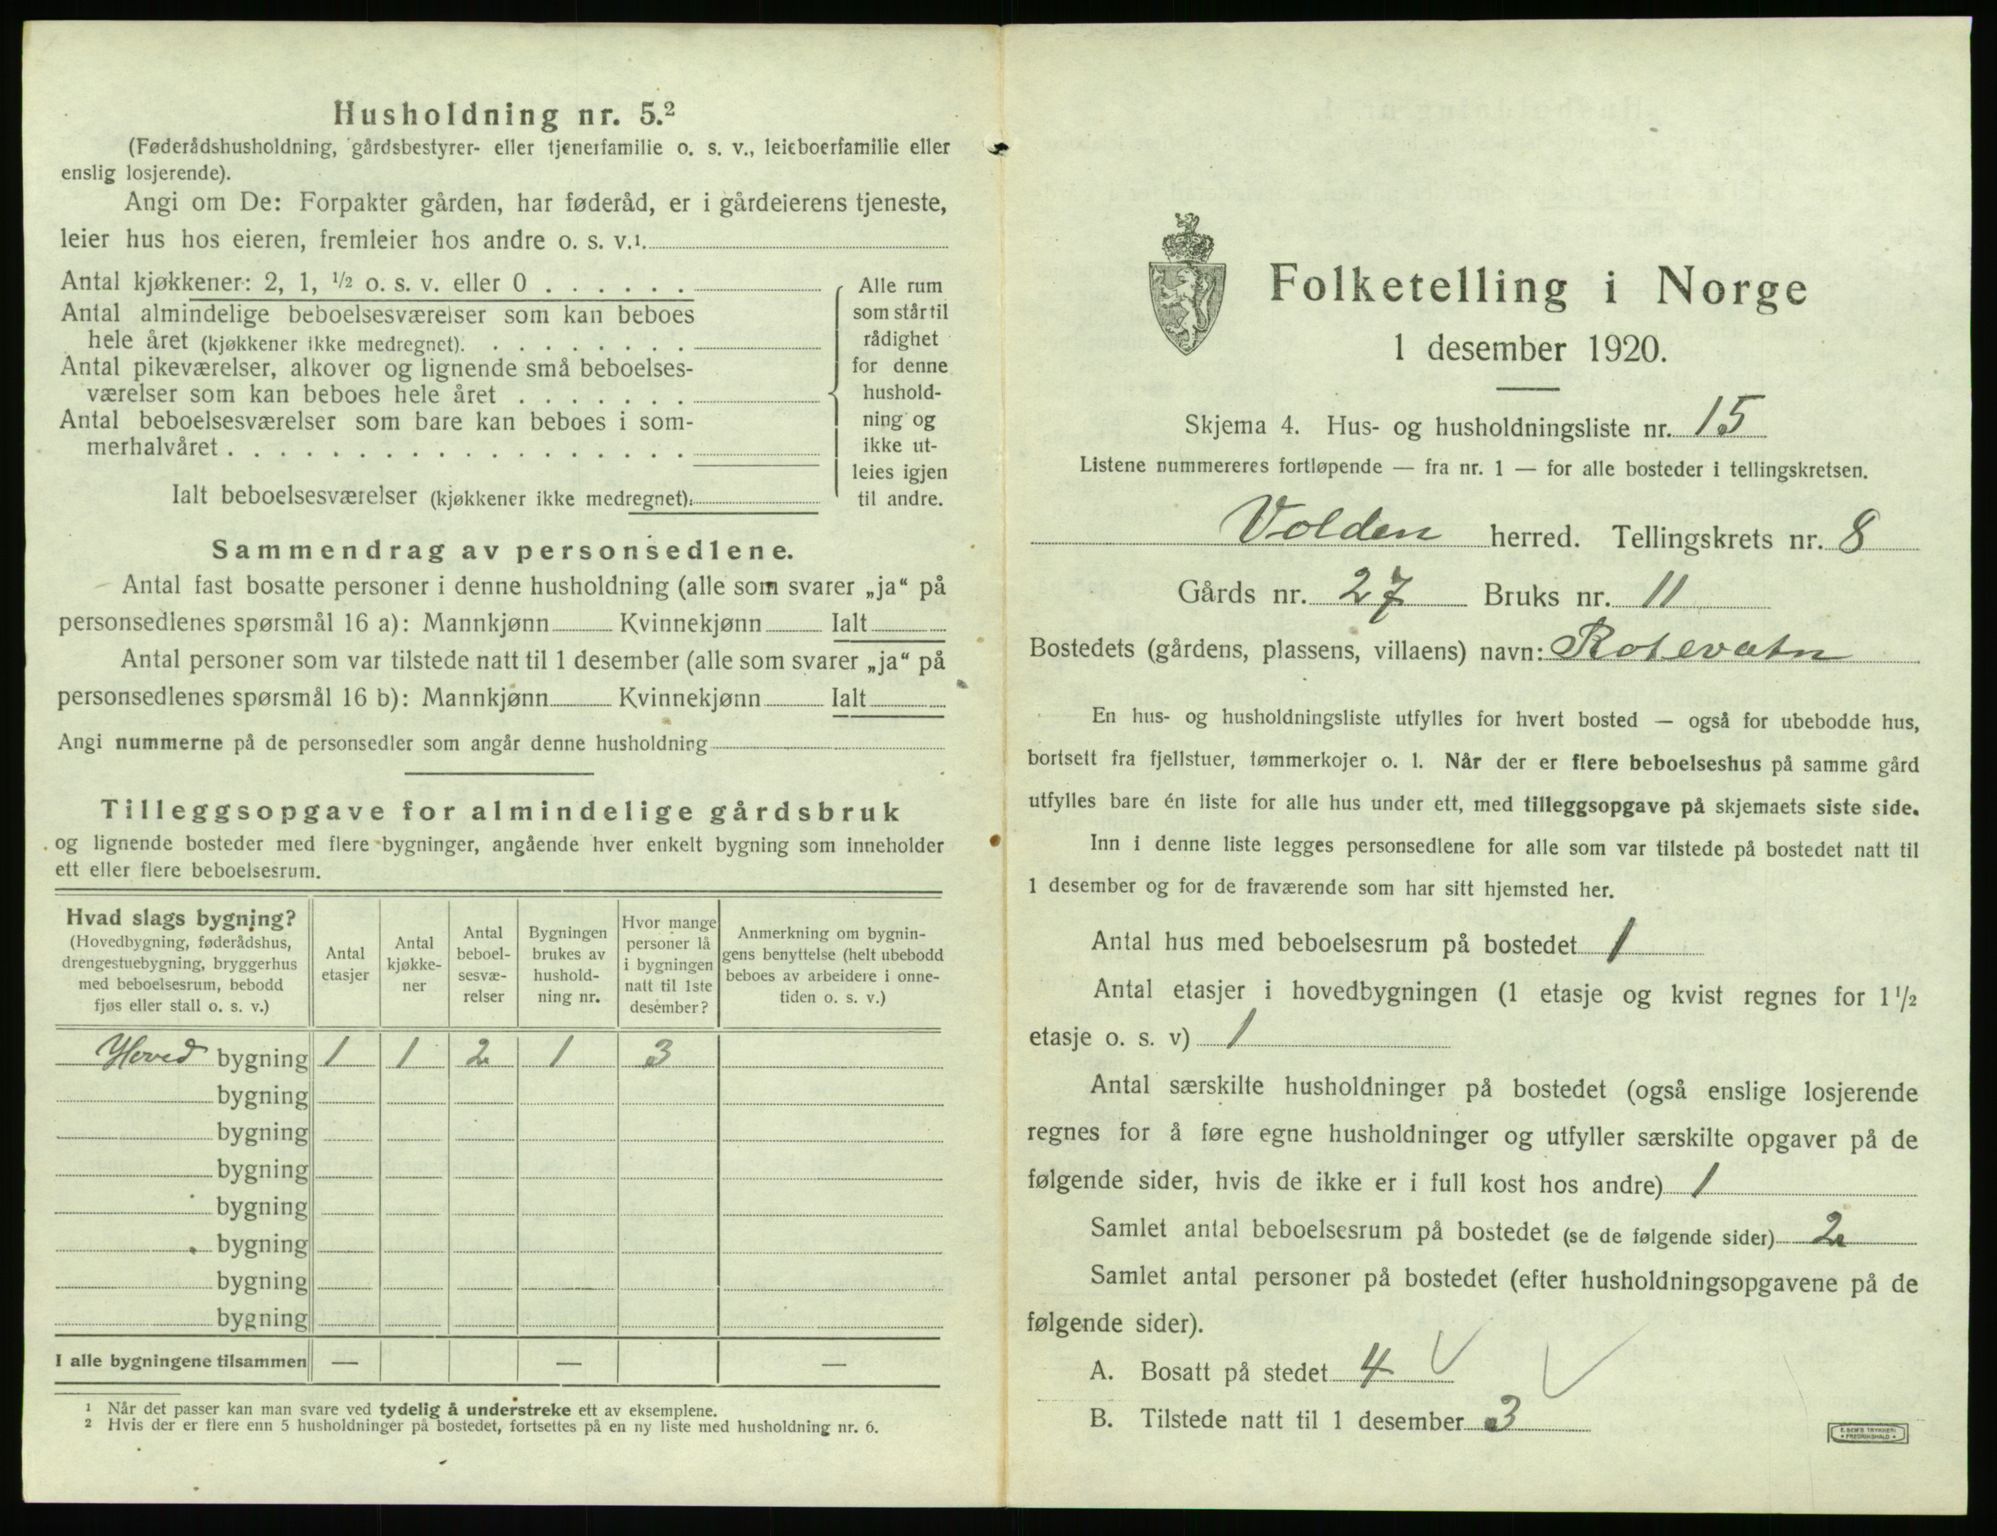 Husholdning nr. 5.²
(Føderådshusholdning, gårdsbestyrer- eller tjenerfamilie o. s. v., leieboerfamilie eller
enslig losjerende).
Angi om De: Forpakter gården, har føderåd, er i gårdeierens tjeneste,
leier hus hos eieren, fremleier hos andre o. s. v.¹
Antal kjøkkener: 2, 1, ½ o. s. v. eller 0
Antal almindelige beboelsesværelser som kan beboes
hele året (kjøkkener ikke medregnet).
Antal pikeværelser, alkover og lignende små beboelses-
værelser som kan beboes hele året
Antal beboelsesværelser som bare kan beboes i som-
merhalvåret
Ialt beboelsesværelser (kjøkkener ikke medregnet):
Alle rum
som står til
rådighet
for denne
hushold-
ning og
ikke ut-
leies igjen
til andre.
Sammendrag av personsedlene.
Antal fast bosatte personer i denne husholdning (alle som svarer „ja“ på
personsedlenes spørsmål 16 a): Mannkjønn Kvinnekjønn Ialt
Antal personer som var tilstede natt til 1 desember (alle som svarer „ja“ på
personsedlenes spørsmål 16 b): Mannkjønn Kvinnekjønn Ialt
Angi nummerne på de personsedler som angår denne husholdning
Tilleggsopgave for almindelige gårdsbruk
og lignende bosteder med flere bygninger, angående hver enkelt bygning som inneholder
ett eller flere beboelsesrum.
Hvad slags bygning?
(Hovedbygning, føderådshus,
drengestuebygning, bryggerhus
med beboelsesrum, bebodd
fjøs eller stall o. s. v.)
Antal
etasjer
Antal
kjøkke-
ner
Antal
beboel-
sesvæ-
relser
Bygningen
brukes av
hushold-
ning nr.
Hvor mange
personer lå
i bygningen
natt til 1ste
desember?
Anmerkning om bygnin-
gens benyttelse (helt ubebodd
beboes av arbeidere i onne-
tiden o. s. v.)
Hoved bygning 1 1 2 1 3
bygning
bygning
bygning
bygning
bygning
bygning
bygning
I alle bygningene tilsammen — — —
¹ Når det passer kan man svare ved tydelig å understreke ett av eksemplene.
² Hvis der er flere enn 5 husholdninger på bostedet, fortsettes på en ny liste med husholdning nr. 6.
Folketelling i Norge
1 desember 1920.
Skjema 4. Hus- og husholdningsliste nr. 15
Listene nummereres fortløpende — fra nr. 1 — for alle bosteder i tellingskretsen.
Volden herred. Tellingskrets nr. 8
Gårds nr. 27 Bruks nr. 11
Bostedets (gårdens, plassens, villaens) navn: Rotevatn
En hus- og husholdningsliste utfylles for hvert bosted — også for ubebodde hus,
bortsett fra fjellstuer, tømmerkojer o. l. Når der er flere beboelseshus på samme gård
utfylles bare én liste for alle hus under ett, med tilleggsopgave på skjemaets siste side.
Inn i denne liste legges personsedlene for alle som var tilstede på bostedet natt til
1 desember og for de fraværende som har sitt hjemsted her.
Antal hus med beboelsesrum på bostedet 1
Antal etasjer i hovedbygningen (1 etasje og kvist regnes for 1 ½
etasje o. s. v) 1
Antal særskilte husholdninger på bostedet (også enslige losjerende
regnes for å føre egne husholdninger og utfyller særskilte opgaver på de
følgende sider, hvis de ikke er i full kost hos andre) 1
Samlet antal beboelsesrum på bostedet (se de følgende sider) 2
Samlet antal personer på bostedet (efter husholdningsopgavene på de
følgende sider).
A. Bosatt på stedet 4
B. Tilstede natt til 1 desember 3
E. SEM'S TRYKKERI
FREDRIKSHALD